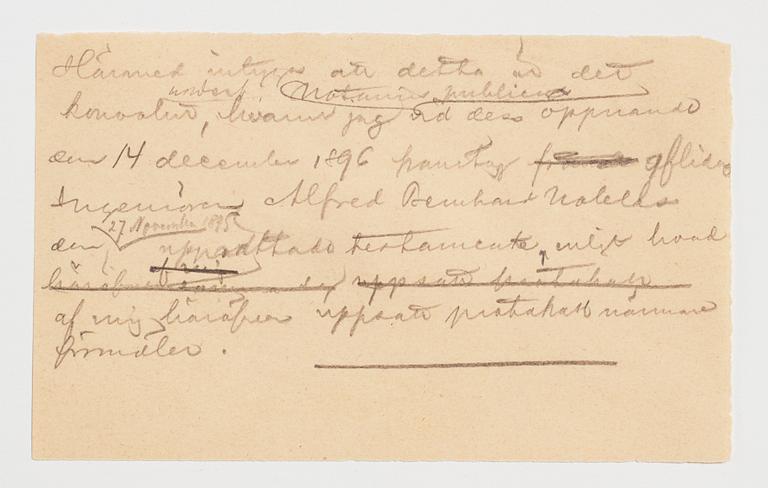 Härmed intygas att detta är det
undert. Notarius publicus
konvolut, hvarur jag vid dess öppnande
den 14 december 1896 framtog aflidne
Ingeniören Alfred Bernhard Nobels
27 November 1895
den upprättade testamente, enligt hvad
häröfver uppsatt protokoll
af mig häröfver uppsatt protokoll närmare
förmäler.